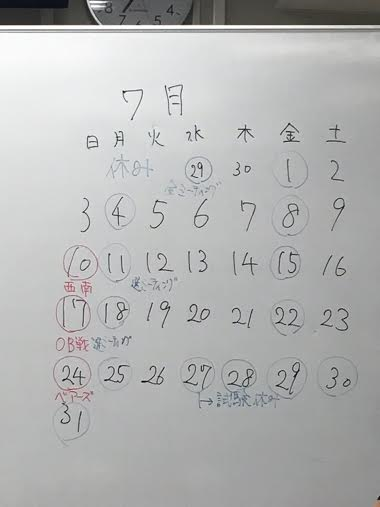 7月
日 月 火 水 木 金 土
休み 29 30 1 2
ミーティング
3 4 5 6 7 8 9
10 11 12 13 14 15 16
西南 ミーティング
17 18 19 20 21 22 23
OB戦 ミーティング
24 25 26 27 28 29 30
ベアーズ →試験休み
31